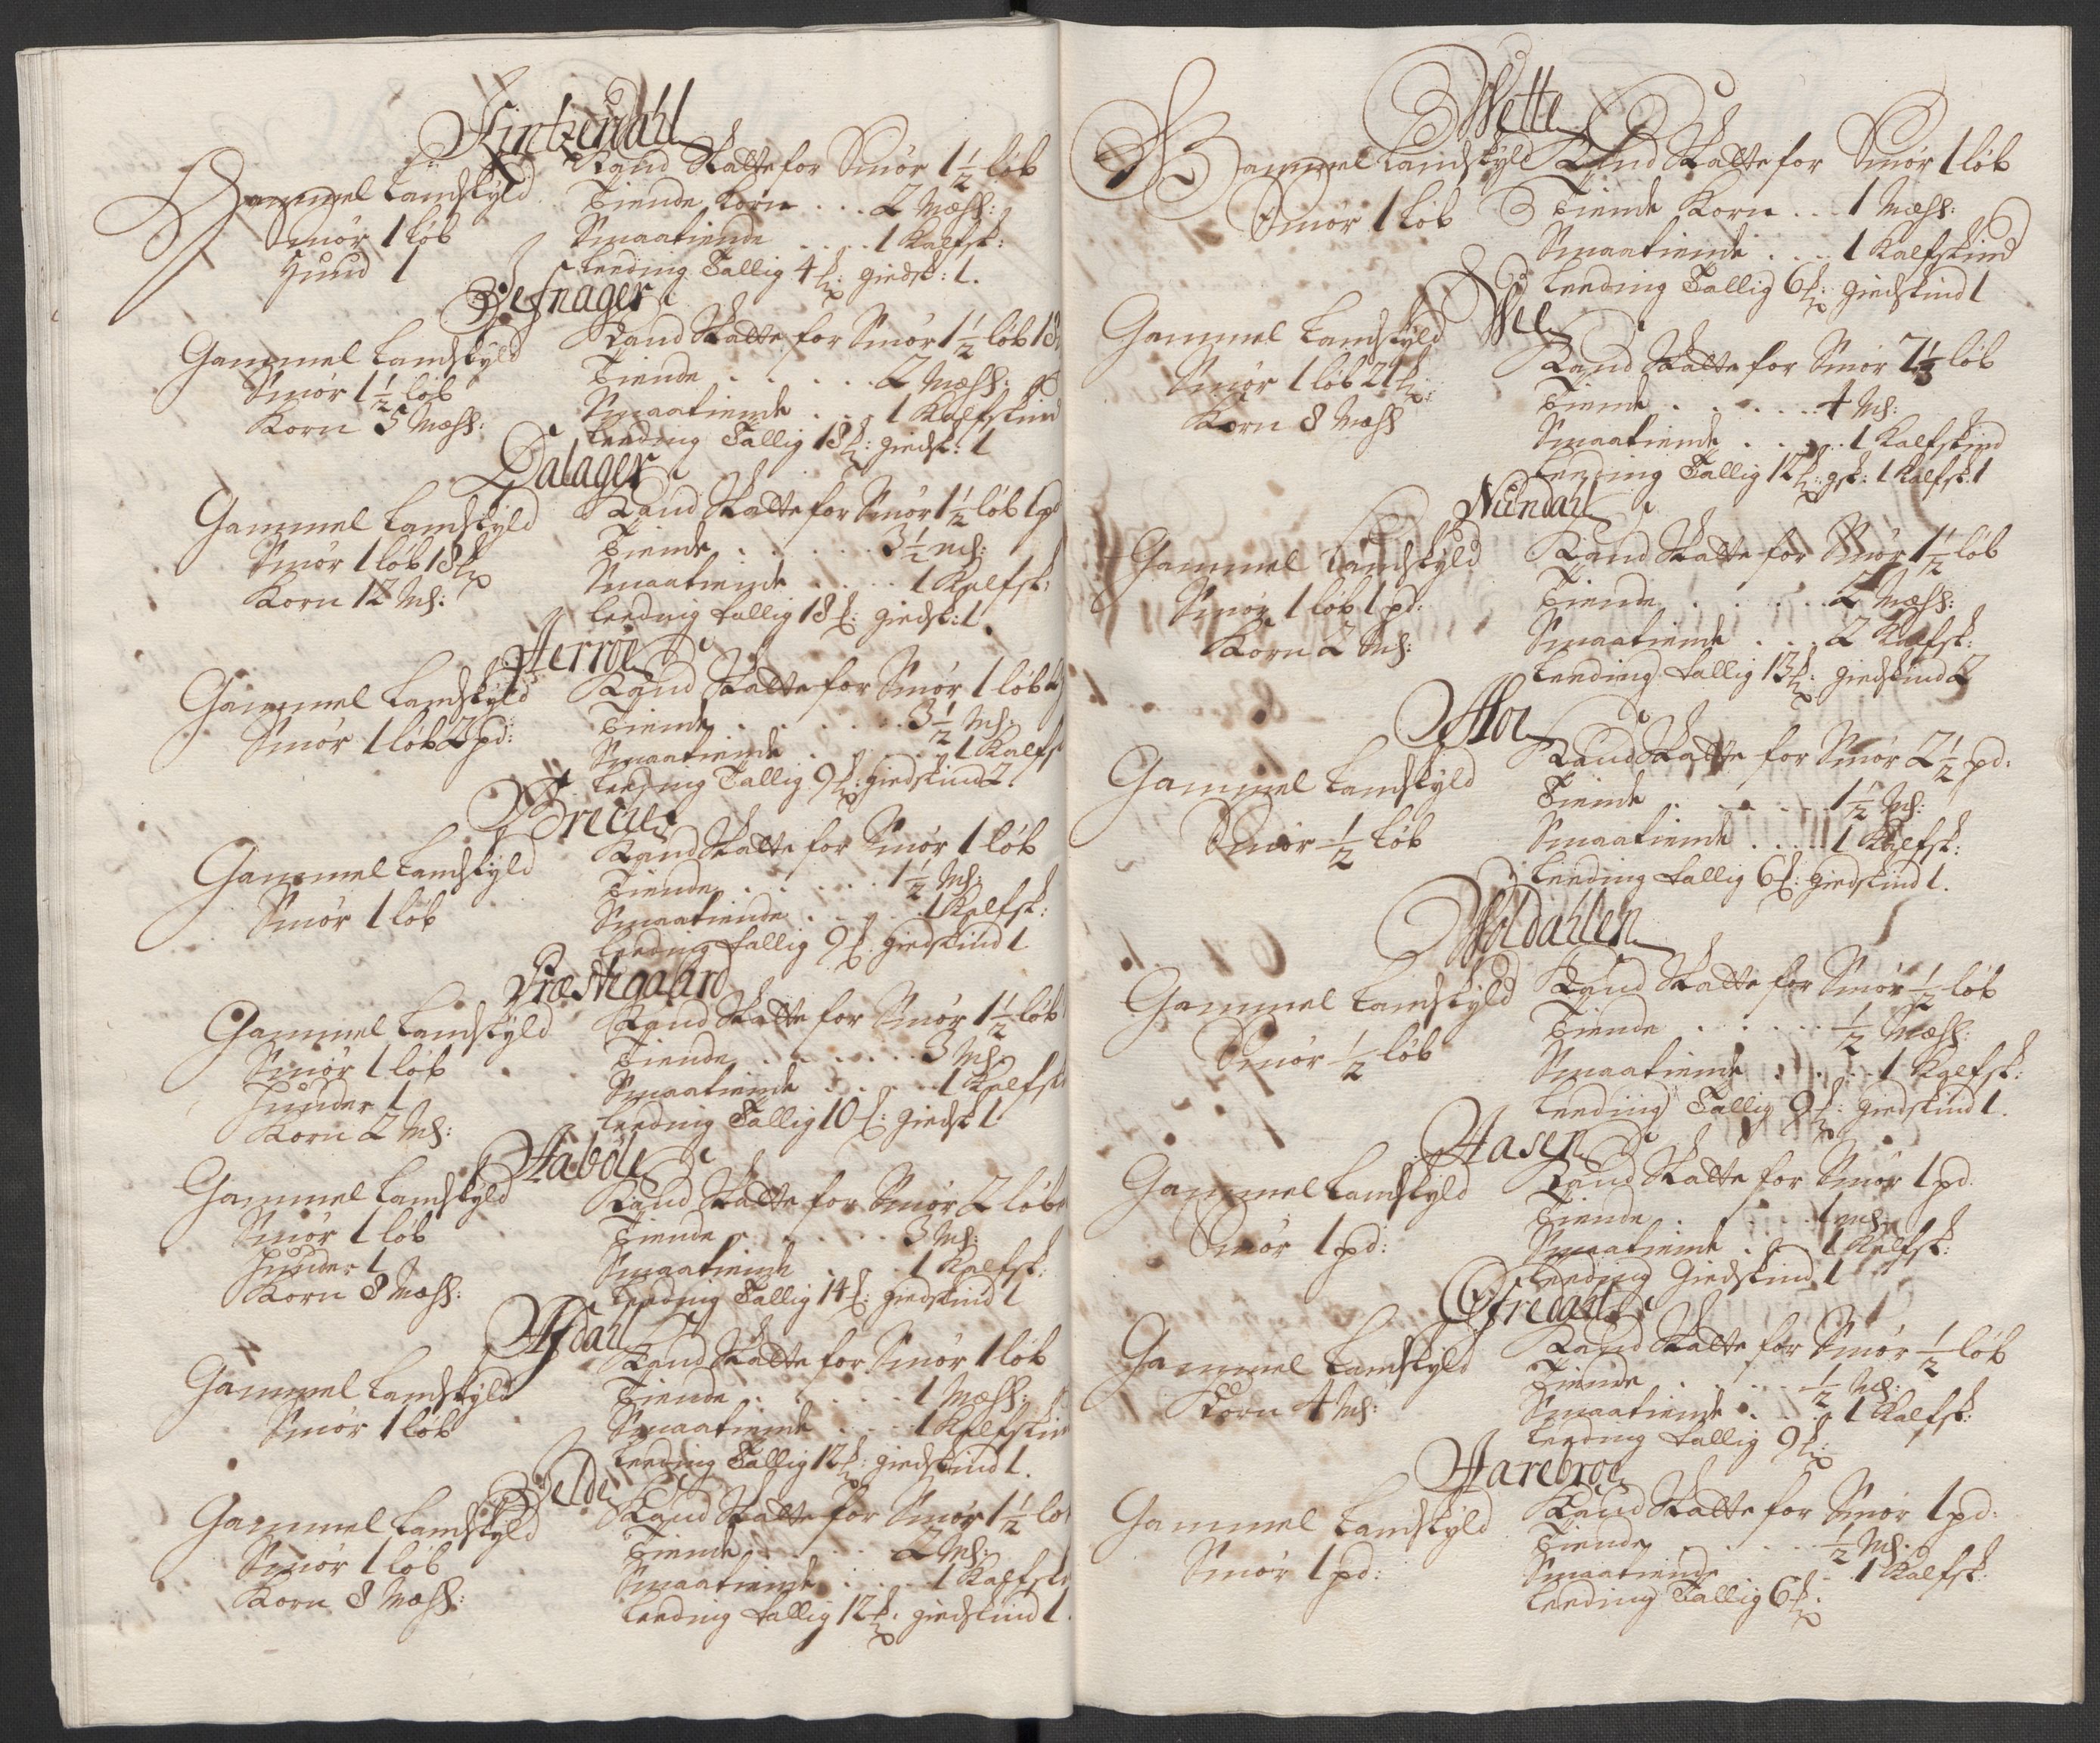 Kintzerdahl
Gammel Landskyld
Smör 1 löb
Huud 1
Kand Skatte for Smör 1 1/2 löb
Tiende Korn . . . 2 Mæhl:
Smaatiende . . . . 1 Kalfsk:
Leeding Tallig 4 giedsk: 1.
Gammel Landskyld
Smör 1 1/2 löb
Korn 5 Mæhl:
Skatte for Smör 1 1/2 löb 18
Tiende . . . . . 2 Mæhl:
Smaatiende . . . 1 Kalfskind
Leeding Tallig 18 giedsk: 1
Dalager
Gammel Landskyld
Smör 1 löb 18
Korn 12 Mhl:
Skatte for Smör 1 1/2 löb 1 pd
Tiende . . . . . 3 1/2 Mhl:
Smaatiende . . . . 1 Kalfsk:
Leeding tallig 18 giedsk: 1.
Jerröe
Gammel Landskyld
Smör 1 löb 2 pd:
Skatte for Smör 1 löb
Tiende . . . . . . 3 1/2 Mhl:
Smaatiende . . . . . 1 Kalfs
Leeding Tallig 9 giedskind 2.
Gammel Landskyld
Smör 1 löb
Skatte for Smör 1 löb
Tiende . . . . . 1 1/2 Mhl:
Smaatiende . . . . 1 Kalfsk:
Leeding tallig 9 giedskind 1
Præstegaard
Gammel Landskyld
Smör 1 löb
Huuder 1
Korn 2 Mhl:
Skatte for Smör 1 1/2 löb
Tiende . . . . . . 3 Mhl:
Smaatiende . . . . . 1 Kalfsk
Leeding Tallig 10 giedsk 1
Aaböle
Gammel Landskyld
Smör 1 löb
Huuder 1
Korn 8 Mæhl:
Skatte for Smör 2 löb
Tiende . . . . . . 3 Mhl:
Smaatiende . . . . 1 Kalfsk:
Leeding Tallig 14 giedskind 1
Afdal
Gammel Landskyld
Smör 1 löb
Skatte for Smör 1 löb
Tiende . . . . . . 1 Mæhl:
Smaatiende . . . 1 Kalfskin
Leeding Tallig 12 giedskind 1.
Gielde
Gammel Landskyld
Smör 1 löb
Korn 8 Mæhl:
Skatte for Smör 1 1/2 lö
Tiende . . . . . 2 Mhl:
Smaatiende . . . . 1 Kalfsk
Leeding tallig 12 giedskind 1.
Wette
Gammel Landskyld
Smör 1 löb
Skatte for Smör 1 löb
Tiende Korn . . . 1 Mæhl:
Smaatiende . . . . 1 Kalfskind
Leeding Tallig 6 giedskind 1
Wee
Gammel Landskyld
Smör 1 löb 21
Korn 8 Mæhl
Skatte for Smör 7 1/3 löb
Tiende . . . . . . 4 Mhl:
Smaatiende . . . . . 1 Kalfskind
Leeding Tallig 12 gsk: 1 Kalfsk: 1
Nundal
Gammel Landskyld
Smör 1 löb 1 pd:
Korn 2 Mhl:
Skatte for Smör 1 1/2 löb
Tiende . . . . . 2 Mæhl:
Smaatiende . . . 2 Kalfsk:
Leeding tallig 13 giedskind 2
Moe
Gammel Landskyld
Smör 1/2 löb
Skatte for Smör 2 1/2 pd:
Tiende . . . . . 1 1/2 Mhl:
Smaatiende . . . . 1 Kalfsk:
Leeding tallig 6 giedskind 1.
Woldahlen
Gammel Landskyld
Smör 1/2 löb
Skatte for Smör 1/2 löb
Tiende . . . . . 1/2 Mæhl:
Smaatiende . . . . 1 Kalfsk:
Leeding Tallig 9 giedskind 1.
Aasen
Gammel Landskyld
Smör 1 pd:
Skatte for Smör 1 pd.
Tiende . . . . . 1 Mhl:
Smaatiende . . . 1 Kalfsk:
Leeding Giedskind 1
Ofredahl
Gammel Landskyld
Korn 4 Mhl:
Skatte for Smör 1/2 löb
Tiende . . . . . 1/2 Mhl:
Smaatiende . . . . 1 Kalfsk:
Leeding tallig 9
Aarebroe
Gammel Landskyld
Smör 1 pd:
Skatte for Smör 1 pd:
Tiende . . . . . 1/2 Mhl:
Smaatiende . . . 1 Kalfsk:
Leeding Tallig 6